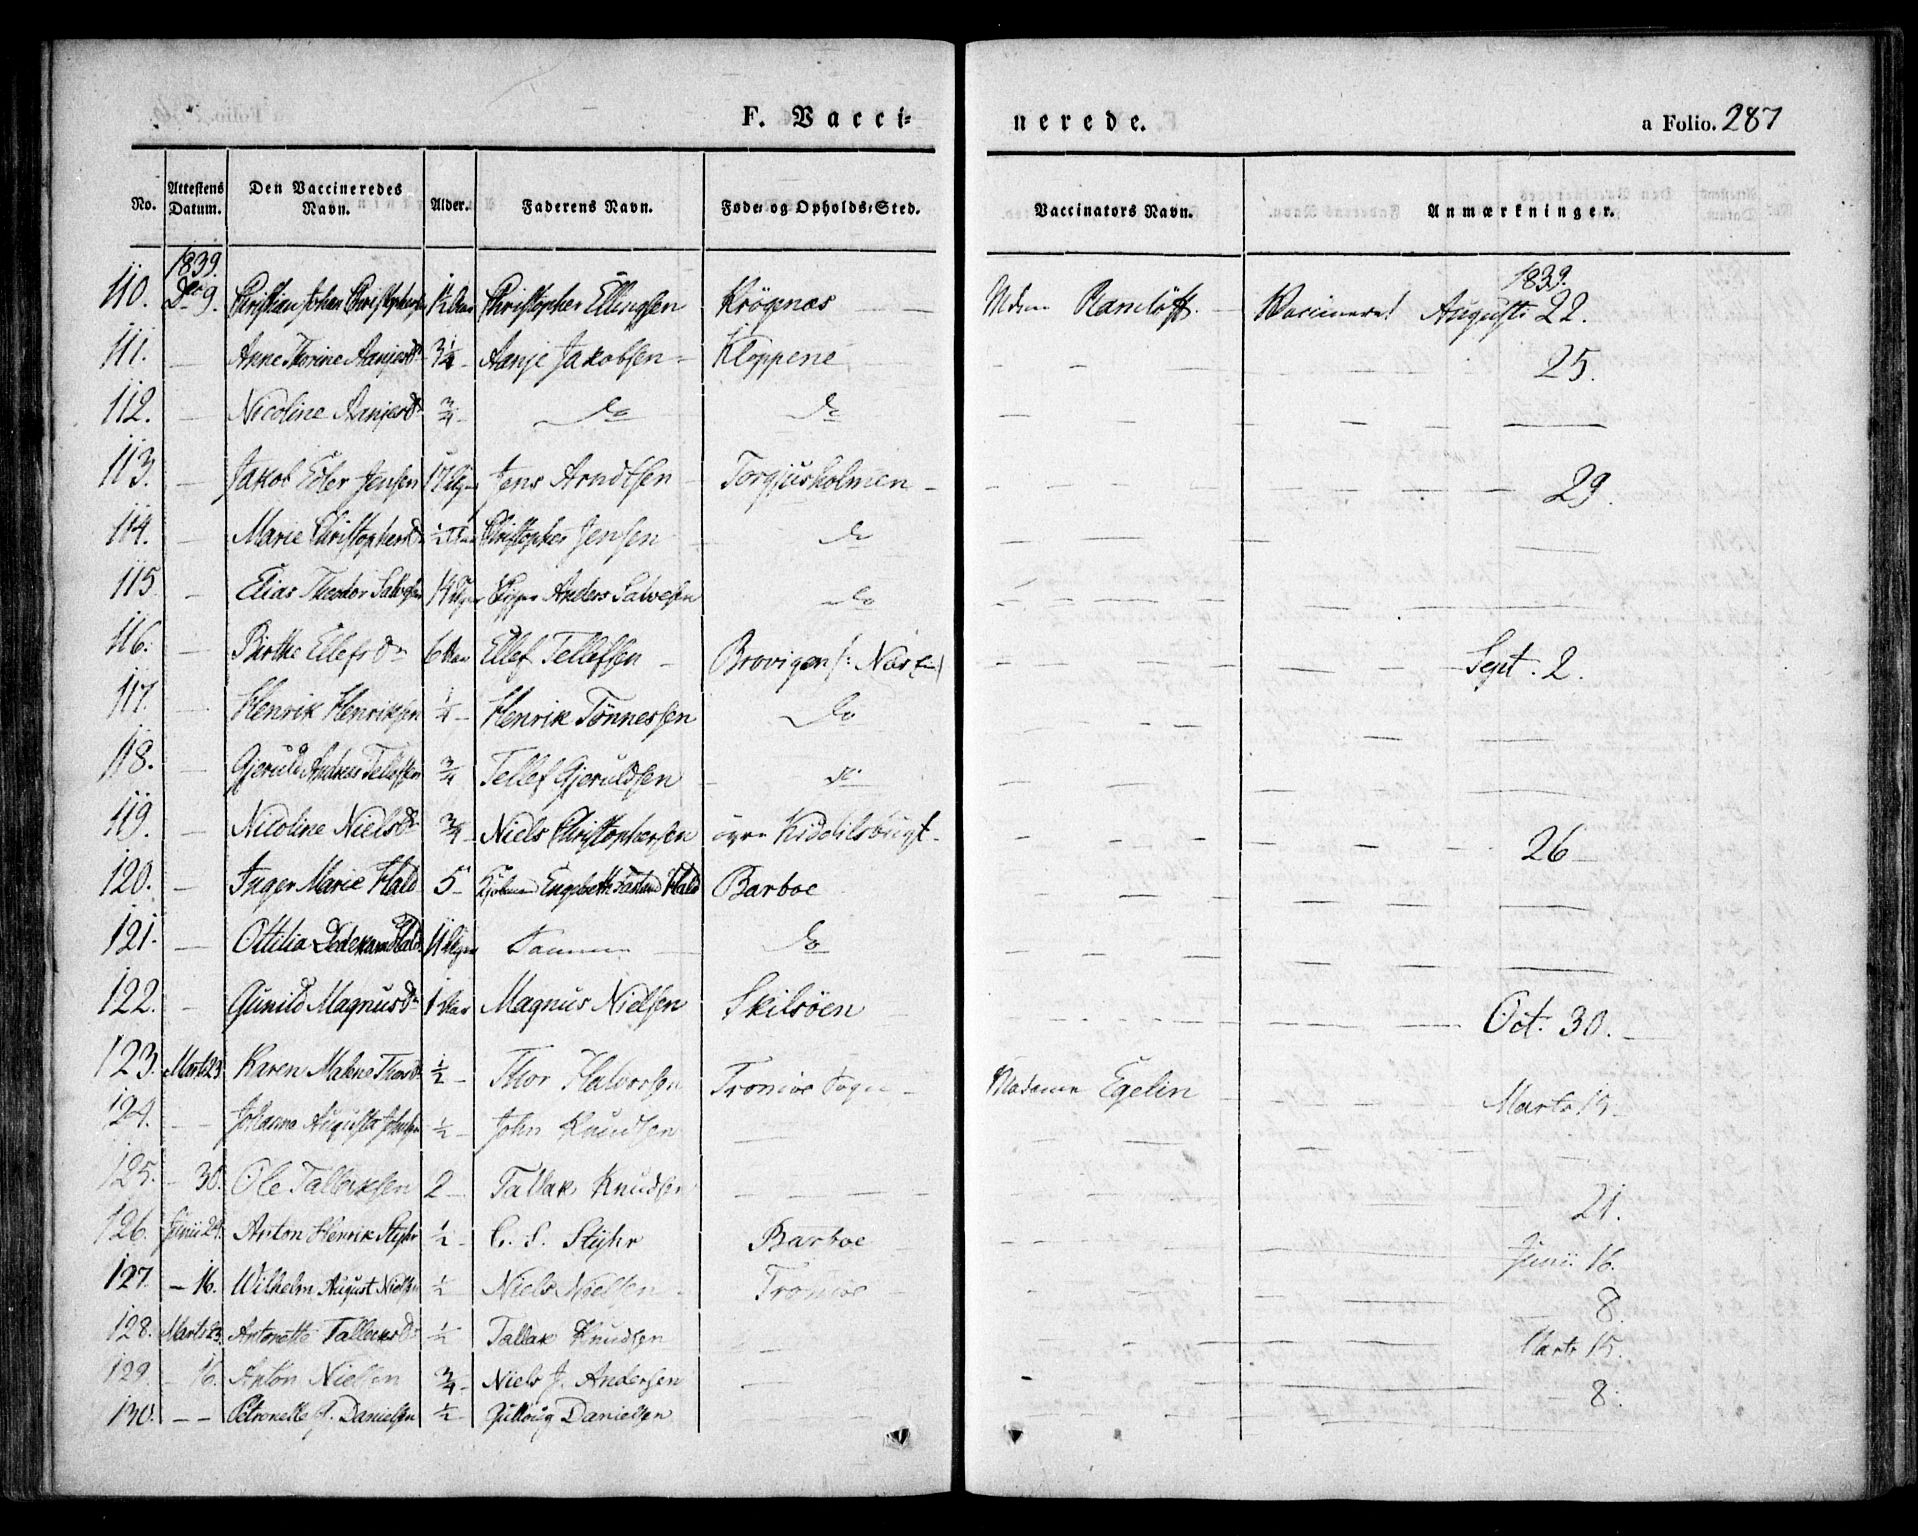 F. Vacci-
nerede.
a Folio. 287
No. Attestens Datum. Den Vaccineredes Navn. Alder. Faderens Navn. Føde- og Opholds-Sted. Vaccinators Navn. Anmærkninger.
1839. 1839.
110. Dec 9. Christian Johan Christophersen 1½ Aar Christopher Ellingsen Krögenæs Mdme Ramlöff. Vaccineret Augusti 22.
111. — Anne Thorine Aanjesd 3¼ Aanje Jakobsen Kloppene 25.
112. — Nicoline Aanjesd ¾ do do
113. — Jakob Edler Jensen 17 Jens Arndtsen Torgjusholmen 29.
114. — Marie Christophersd ½ Christopher Jensen do
115 — Elias Theodor Salvesen 14 Anders Salvesen do
116. — Birthe Ellefsdr 6 Aar Ellef Tellefsen Brovigen Sept. 2.
117. — Henrik Henriksen ¼ Henrik Tönnessen do
118. — Gjeruld Andreas Tellefsen ¾ Tellef Gjeruldsen do
119. — Nicoline Nielsdr ¾ Niels Christophersen övre Kiddelsbugt 26
120. — Inger Marie Hald 5 Engebreth Hald Barboe
121. — Ottilia Hald 11 Samme do
122. — Gunild Magnusdr 1 Aar Magnus Nielsen Skilsöen Oct. 30.
123. Marts 23 Karen Malene Thorsd ½ Thor Halvorsen Tromöe Sogn Madame Egelin Marts 15.
124. — Johanne Augusta ½ John Knudsen
125. — 30. Ole Tallaksen 2 Tallak Knudsen 21.
126. Junii 24. Anton Henrik Styhr ½ C. S. Styhr Barboe Junii 16.
127. — 16. Wilhelm August Nielsen ½ Niels Nielsen Tromöe 8.
128. Marts 23. Antonette Tallaksdr ½ Tallak Knudsen Marts 15.
129. — 16. Anton Nielsen ¾ Niels J. Andersen 8.
130. — — Petronelle Danielsen ½ Danielsen